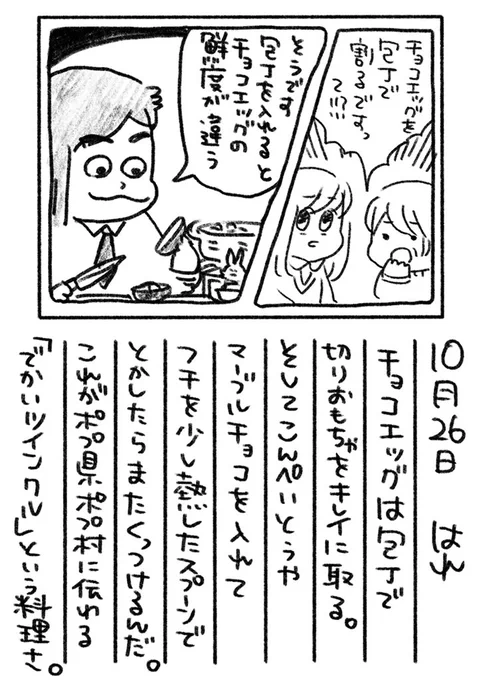 チョコエッグを
包丁で
割るですっ
て!?!…
そうです
包丁を入れると
チョコエッグの
鮮度が違う
10月26日 はれ
チョコエッグは包丁で
切りおもちゃをキレイに取る。
そしてこんぺいとうや
マーブルチョコを入れて
フチを少し熱したスプーンで
とかしたらまたくっつけるんだ。
これがポプ県ポプ村に伝わる
「でかいツインクル」という料理さ。